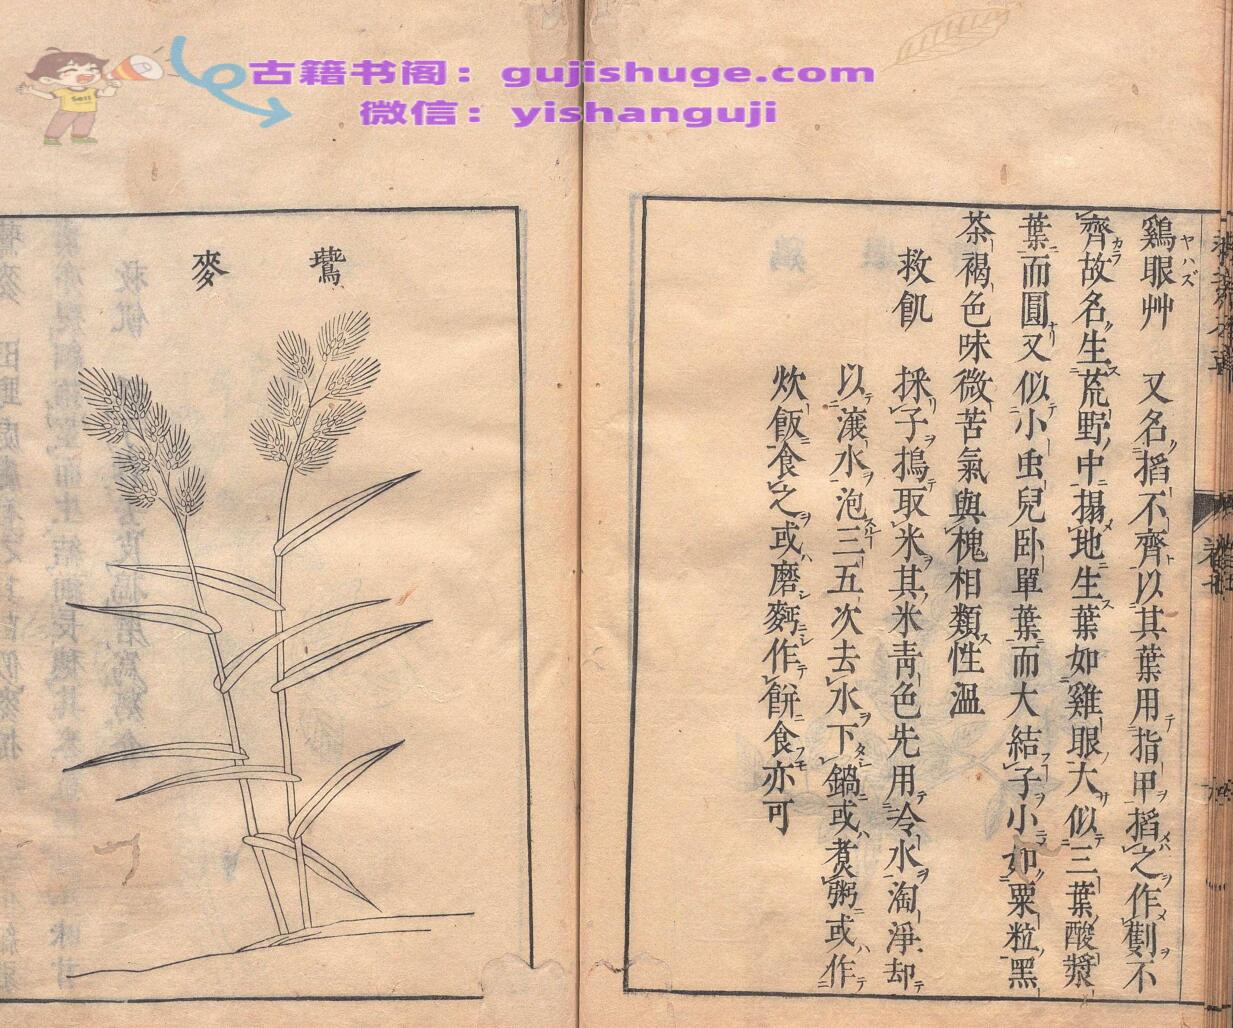 古籍书阁：gujishuge.com
微信：yishanguji
Sell
鷄眼艸 又名掐不齊以其葉用指甲掐之作劐不
齊故名生荒野中搨地生葉如雞眼大似三葉酸漿
葉而圓又似小虫兒卧單葉而大結子小如粟粒黑
茶褐色味微苦氣與槐相類性溫
救飢 採子搗取米其米青色先用冷水淘淨却
以滾水泡三五次去水下鍋或煑粥或作
炊飯食之或磨麪作餅食亦可
鷰麥